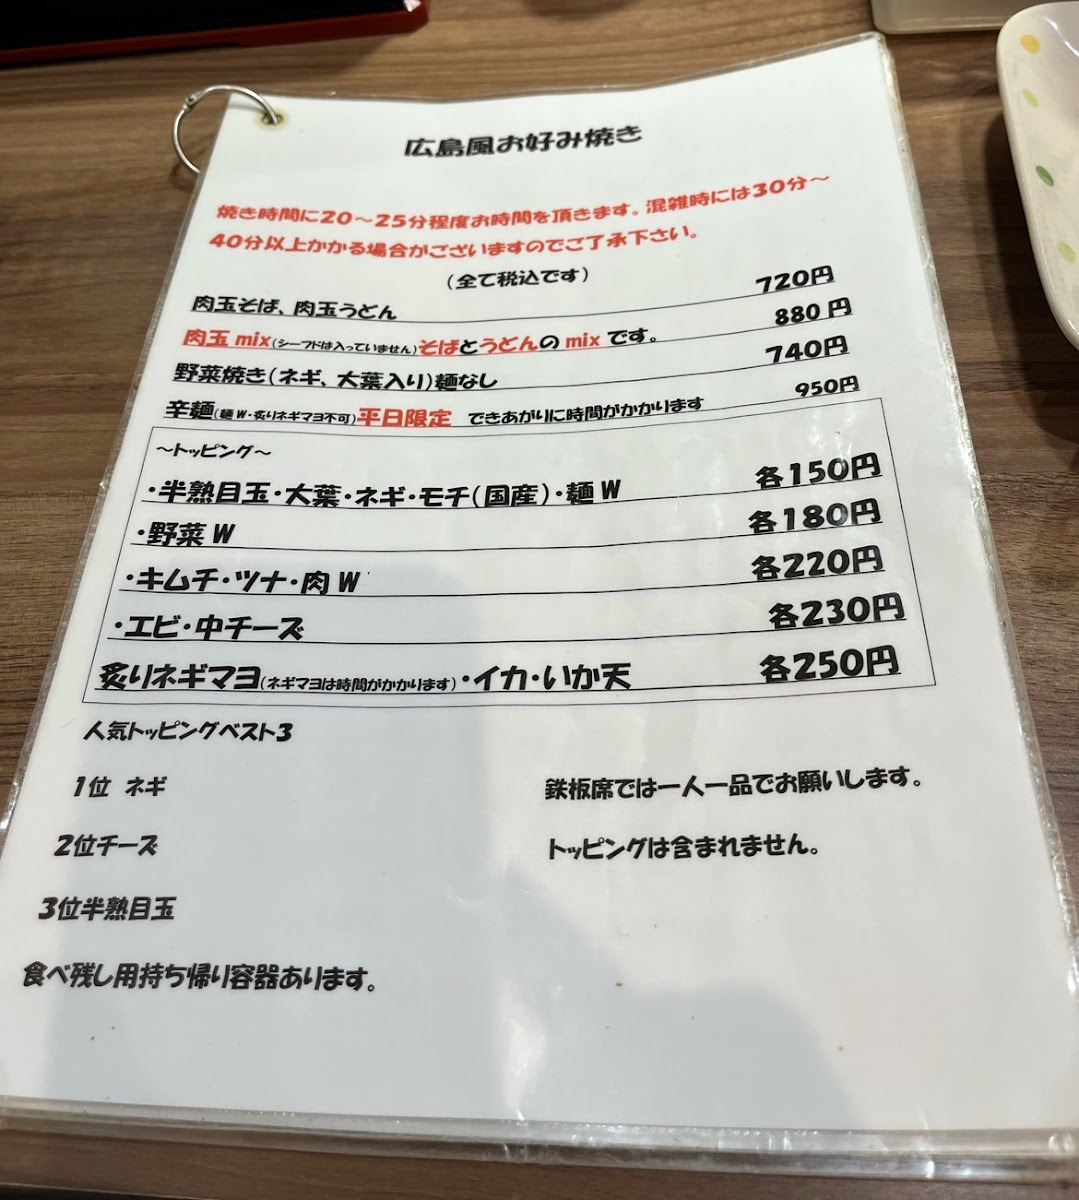 広島風お好み焼き
焼き時間に20～25分程度お時間を頂きます。混雑時には30分～
40分以上かかる場合がございますのでご了承下さい。
(全て税込です)
肉玉そば、肉玉うどん 720円
肉玉 mix(シーフドは入っていません)そばとうどんの mix です。 880円
野菜焼き(ネギ、大葉入り)麺なし 740円
辛麺(麺W・炙りネギマヨ不可)平日限定 できあがりに時間がかかります 950円
～トッピング～
・半熟目玉・大葉・ネギ・モチ(国産)・麺W 各150円
・野菜W 各180円
・キムチ・ツナ・肉W 各220円
・エビ・中チーズ 各230円
炙りネギマヨ(ネギマヨは時間がかかります)・イカ・いか天 各250円
人気トッピングベスト3
1位 ネギ
鉄板席では一人一品でお願いします。
2位チーズ
トッピングは含まれません。
3位半熟目玉
食べ残し用持ち帰り容器あります。